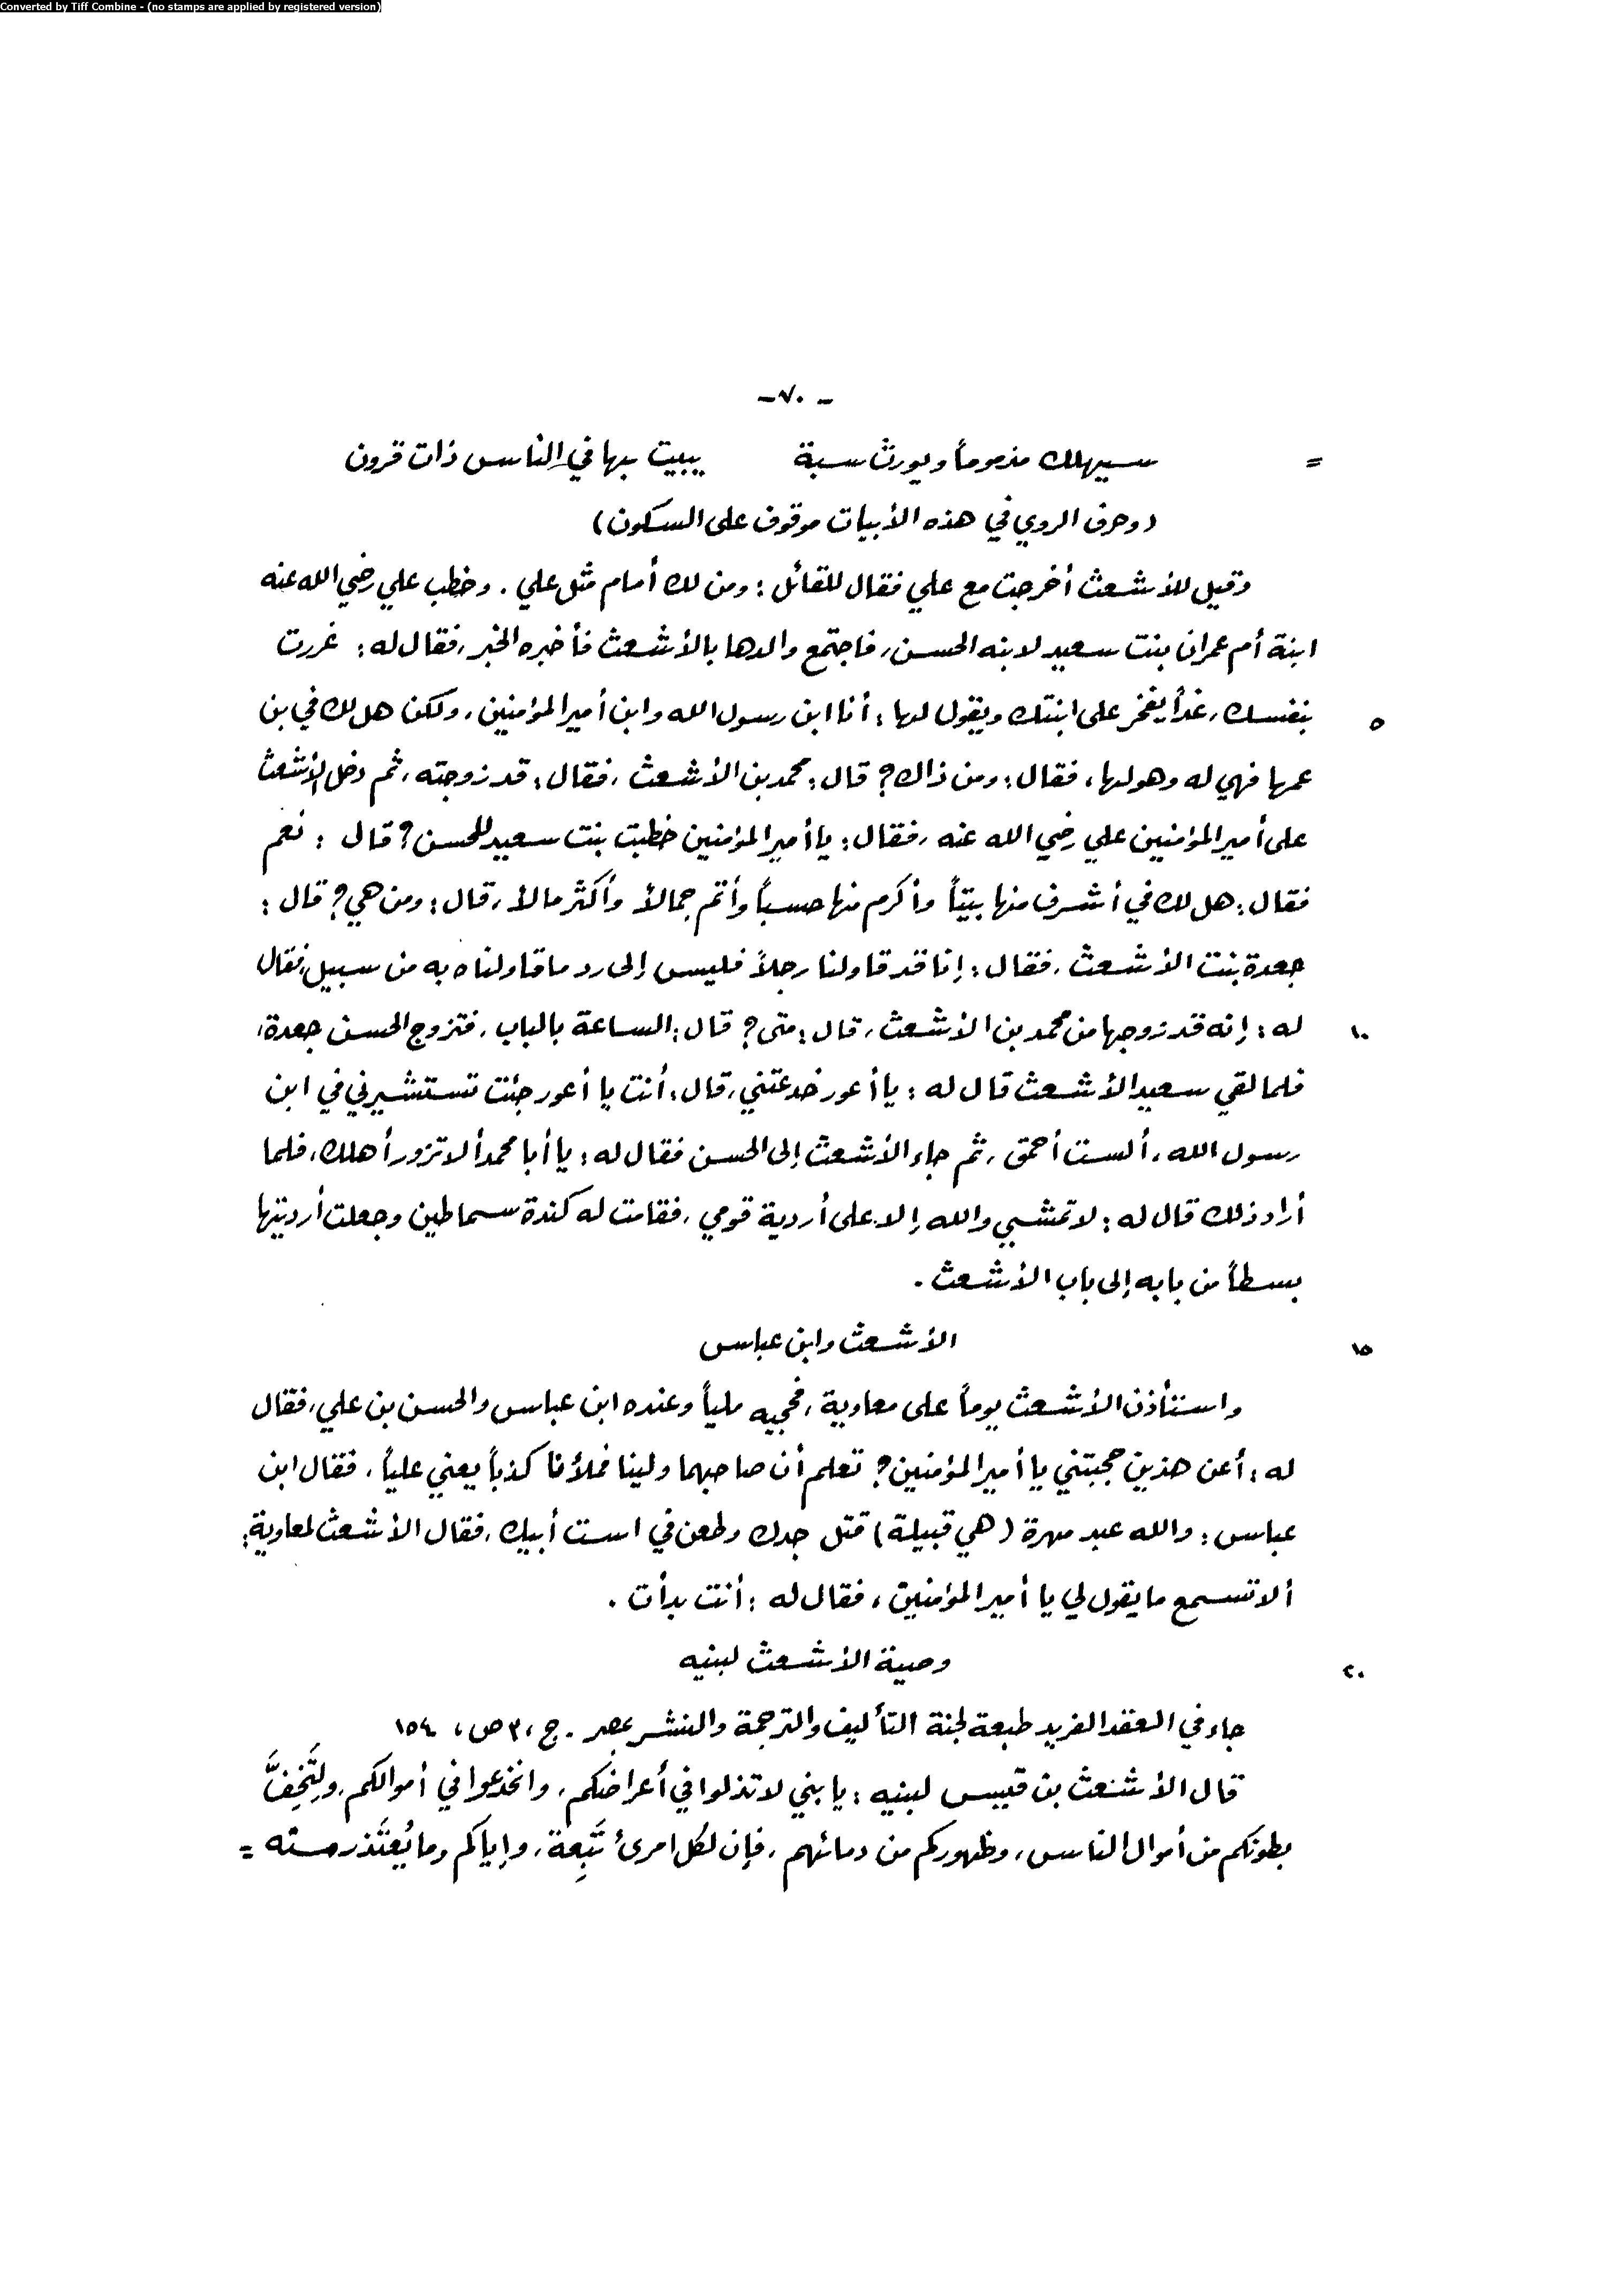 Converted by Tiff Combine - (no stamps are applied by registered version)
- ٧٠ -
= سيهلك مذموماً ويورث سبة يبيت بها في الناس ذات قرون
(وحرف الروي في هذه الأبيات موقوف على السكون)
وقيل للأشعث أخرجت مع علي فقال للقائل : ومن لك أمام مثل علي . وخطب علي رضي الله عنه
ابنة أم عمران بنت سعيد لابنه الحسن، فاجتمع والدها بالأشعث فأخبره الخبر، فقال له : غررت
٥ بنفسك، غداً يفخر على ابنتك ويقول لها : أنا ابن رسول الله وابن أمير المؤمنين، ولكن هل لك في بن
عمها فهي له وهولها، فقال : ومن ذاك؟ قال : محمد بن الأشعث، فقال : قد زوجته، ثم دخل الأشعث
على أمير المؤمنين علي رضي الله عنه، فقال : يا أمير المؤمنين خطبت بنت سعيد للحسن؟ قال : نعم
فقال : هل لك في أشرف منها بيتاً وأكرم منها حسباً وأتم جمالاً وأكثر مالاً، قال : ومن هي؟ قال :
جعدة بنت الأشعث، فقال : إنا قد قاولنا رجلاً فليس إلى رد ما قاولناه به من سبيل، فقال
١٠ له : إنه قد زوجها من محمد بن الأشعث، قال : متى؟ قال : الساعة بالباب، فتزوج الحسن جعدة،
فلما لقي سعيد الأشعث قال له : يا أعور خدعتني، قال : أنت يا أعور جئت تستشيرني في ابن
رسول الله، ألست أحمق، ثم جاء الأشعث إلى الحسن فقال له : يا أبا محمد ألا تزور أهلك، فلما
أراد ذلك قال له : لا تمشي والله إلا على أردية قومي، فقامت له كندة سماطين وجعلت أرديتها
بسطاً من بابه إلى باب الأشعث .
١٥ الأشعث وابن عباس
واستأذن الأشعث يوماً على معاوية، فحجبه ملياً وعنده ابن عباس والحسن بن علي، فقال
له : أعن هذين حجبتني يا أمير المؤمنين؟ تعلم أن صاحبهما ولينا فملأنا كذباً يعني علياً، فقال ابن
عباس : والله عبد مهرة (هي قبيلة) قتل جدك وطعن في است أبيك، فقال الأشعث لمعاوية :
ألا تسمع ما يقول لي يا أمير المؤمنين، فقال له : أنت بدأت .
٢٠ وصية الأشعث لبنيه
جاء في العقد الفريد طبعة لجنة التأليف والترجمة والنشر بمصر . ج، ٣ ص، ١٥٤
قال الأشعث بن قيس لبنيه : يا بني لا تذلوا في أعراضكم، وانخدعوا في أموالكم، ولتَخِفَّ
بطونكم من أموال الناس، وظهوركم من دمائهم، فإن لكل امرئ تَبِعة، وإياكم وما يُعتَذر منه =